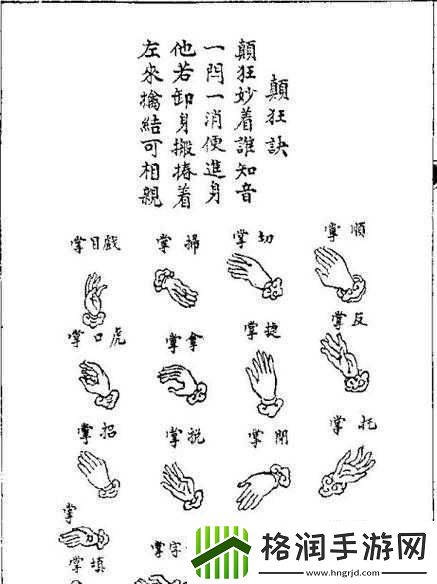 顛狂訣
顛狂妙着誰知音
一閃一消便進身
他若卸身搬樁着
左來擒結可相親
順掌
切掌
掃掌
戲目掌
反掌
捷掌
拿掌
虎口掌
托掌
閉掌
掌
招掌
掌
字
填掌
格润手游网
www.hngrjd.com